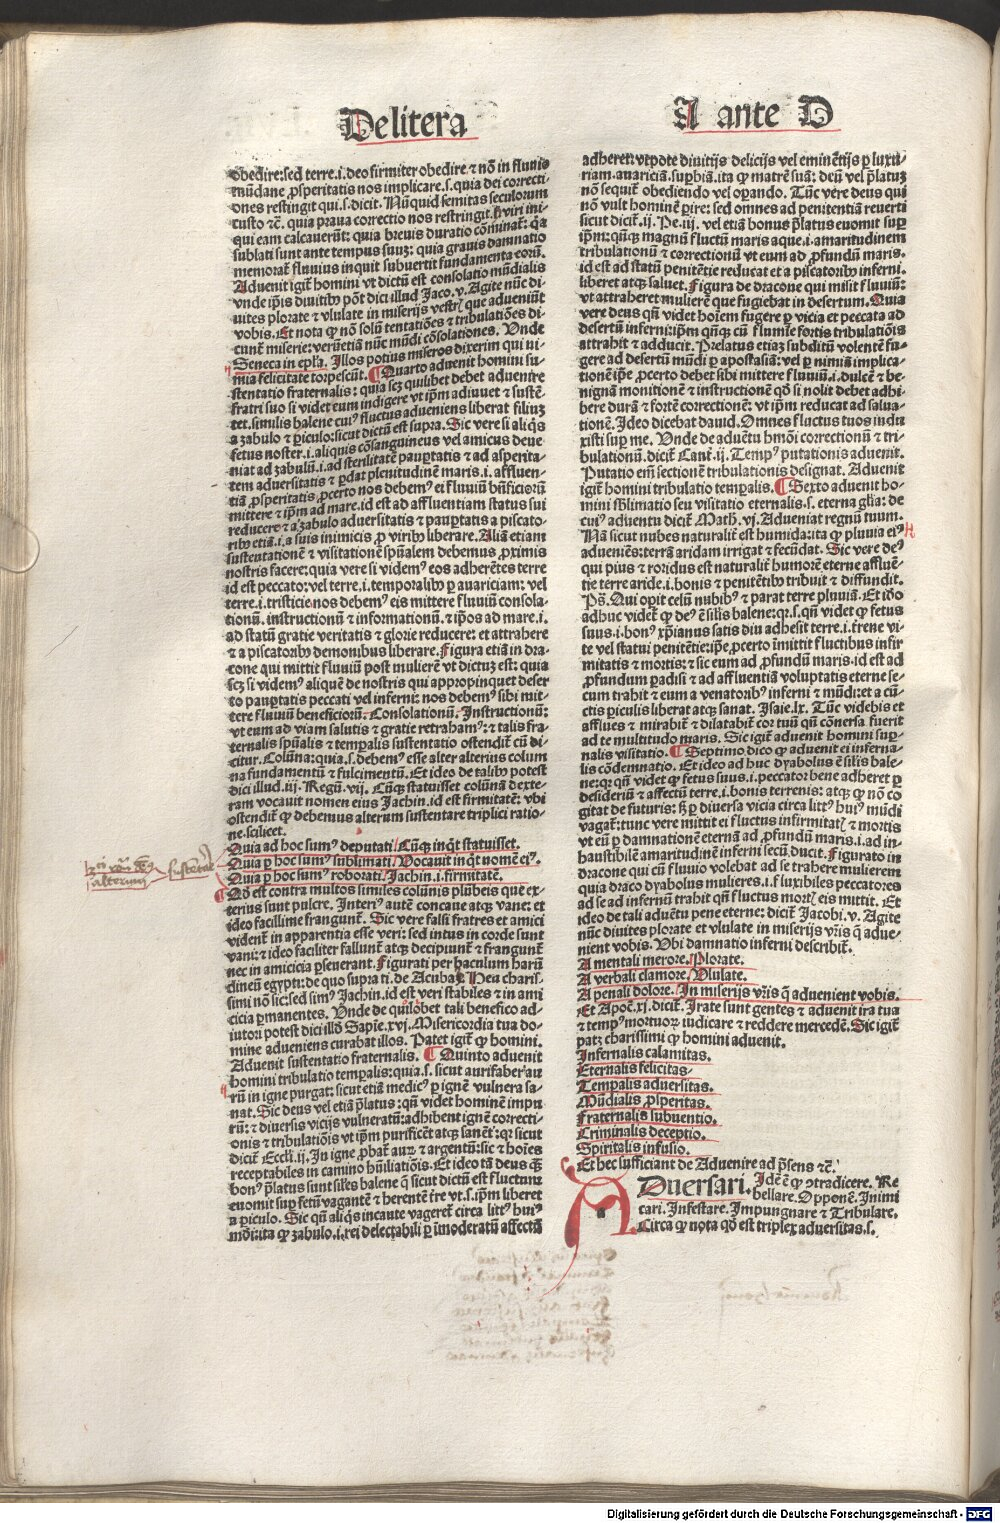 De litera
A ante D
obedire: sed terre .i. deo firmiter obedire ⁊ nō in fluuijs
mūdane ꝓsperitatis nos implicare .s. quia dei correcti-
ones restingit qui .s. dicit. Nūquid semitas seculorum
custo ⁊c̄. quia praua correctio nos restringit. ꝙ viri ini-
qui eam calcauerūt: quia breuis duratio cōminat̄: q̄a
sublati sunt ante tempus suuȝ: quia grauis damnatio
memorat̄ fluuius inquit subuertit fundamenta eorū.
Aduenit igit̄ homini vt dictū est consolatio mūdialis
vnde ip̄is diuitibꝰ pōt dici illud Jaco. v. Agite nūc di-
uites plorate ⁊ vlulate in miserijs vestrꝭ que adueniūt
vobis. Et nota ꝙ nō solū tentatiōes ⁊ tribulatiōes di
cunt̄ miserie: verūetiā nūc mūdi cōsolationes. Vnde
Seneca in ep̄la. Illos potius miseros dixerim qui ni-
mia felicitate torpescūt. ¶ Quarto aduenit homini su-
stentatio fraternalis: quia scȝ quilibet debet aduenire
fratri suo si videt eum indigere vt ip̄m adiuuet ⁊ suste-
tet. similis balene cuiꝰ fluctus adueniens liberat filiuȝ
a zabulo ⁊ ꝑiculo: sicut dictū est supra. Sic vere si aliq̄s
fetus noster .i. aliquis cōsanguineus vel amicus deue
niat ad zabulū .i. ad sterilitatē pauꝑtatis ⁊ ad asperita-
tem aduersitatis ⁊ ꝑdat plenitudinē maris .i. affluen-
tiā ꝓsperitatis ꝓcerto nos debemꝰ ei fluuiū bn̄ficiorū
mittere ⁊ ip̄m ad mare .id est ad affluentiam status sui
reducere ⁊ a zabulo aduersitatis ⁊ pauꝑtatis a piscato-
ribꝰ etiā .i. a suis inimicis ꝓ viribꝰ liberare. Aliā etiam
sustentationē ⁊ visitationē spūalem debemus ꝓximis
nostris facere: quia vere si videmꝰ eos adherētes terre
id est peccato: vel terre .i. temporalibꝰ ꝑ auariciam: vel
terre .i. tristicie nos debemꝰ eis mittere fluuiū consola-
tionū. instructionū ⁊ informationū. ⁊ ip̄os ad mare .i.
ad statū gratie veritatis ⁊ glorie reducere: et attrahere
⁊ a piscatoribꝰ demonibus liberare. Figura etiā in dra-
cone qui mittit fluuiū post mulierē vt dictuȝ est: quia
scȝ si videmꝰ aliquē de nostris qui appropinquet deser
to pauꝑtatis peccati vel inferni: nos debemꝰ sibi mit-
tere fluuiū beneficiorū. Consolationū. Instructionū:
vt eum ad viam salutis ⁊ gratie retrahamꝰ: ⁊ talis fra-
ternalis spūalis ⁊ temꝑalis sustentatio ostendit̄ cū di-
citur. Colūna: quia .s. debemꝰ esse alter alterius colum
na fundamentū ⁊ fulcimentū. Et ideo de talibꝰ potest
dici illud .iij. Regū. vij. Cūqȝ statuisset colūnā dexte-
ram vocauit nomen eius Jachin. id est firmitatē: vbi
ostendit̄ ꝙ debemus alterum sustentare triplici ratio-
ne. scilicet.
Quia ad hoc sumꝰ deputati. Cūqȝ inq̄t statuisset.
Quia ꝑ hoc sumꝰ sublimati. Vocauit inq̄t nomē eiꝰ.
Quia ꝑ hoc sumꝰ roborati. Jachin .i. firmitatē.
Qd̄ est contra multos similes colūnis plūbeis que ex-
terius sunt pulcre. Interiꝰ autē concaue atqȝ vane: et
ideo facillime frangunt̄. Sic vere falsi fratres et amici
vident̄ in apparentia esse veri: sed intus in corde sunt
vani: ⁊ ideo faciliter fallunt atqȝ decipiunt ⁊ frangunt̄
nec in amicicia ꝑseuerant. Figurati per baculum harū
dineū egypti: de quo supra ti. de Acuba. Heu charis-
simi nō sic: sed simꝰ Jachin. id est veri stabiles ⁊ in ami
cicia ꝑmanentes. Vnde de quilibet tali benefico ad-
iutori potest dici illd̄ Sapie. xvj. Misericordia tua do-
mine adueniens curabat illos. Patet igit̄ ꝙ homini.
Aduenit sustentatio fraternalis. ¶ Quinto aduenit
homini tribulatio temꝑalis: quia .s. sicut aurifaber au
rū in igne purgat: sicut etiā medicꝰ ꝑ ignē vulnera sa-
nat. Sic deus vel etiā p̄latus: qn̄ videt hominē impu
rū: ⁊ diuersis vicijs vulneratū: adhibent ignē correcti-
onis ⁊ tribulatiōis vt ip̄m purificēt atqȝ sanēt: qꝛ sicut
dicit̄ Eccli. ij. In igne ꝓbat̄ auꝝ ⁊ argentū: sic ⁊ hoīes
receptabiles in camino hūiliatiōis. Et ideo tā deus q̄ȝ
bonꝰ p̄latus sunt sil̄es balene q̄ sicut dictū est fluctum
euomit suꝑ fetū vagantē ⁊ herentē tr̄e vt .s. ip̄m liberet
a ꝑiculo. Sic qn̄ aliq̄s incaute vageret̄ circa littꝰ huiꝰ
mōi: ita ꝙ zabulo .i. rei delectabili ꝑ īmoderatū affectū
adheret: vtpote diuitijs delicijs vel eminētijs ꝑ luxu-
riam. auariciā. suꝑbiā. ita ꝙ matrē suā: deū vel p̄latuȝ
nō sequit̄ obediendo vel oꝑando. Tūc vere deus qui
nō vult hominē ꝑire: sed omnes ad penitentiā reuerti
sicut dicit̄ .ij. Pe. iij. vel etiā bonus p̄latus euomit suꝑ
ip̄m: qn̄qȝ magnū fluctū maris aque .i. amaritudinem
tribulationū ⁊ correctionū vt eum ad ꝓfundū maris.
id est ad statū penitētie reducat et a piscatoribꝰ inferni.
liberet atqȝ saluet. Figura de dracone qui misit fluuiū:
vt attraheret mulierē que fugiebat in desertum. Quia
vere deus qn̄ videt hoīem fugere ꝑ vicia et peccata ad
desertū inferni: ip̄m qn̄qȝ cū flumīe fortis tribulatiōis
attrahit ⁊ adducit. Prelatus etiaȝ subditū volentē fu-
gere ad desertū mūdi ꝑ apostasiā: vel ꝑ nimiā implica-
tionē ip̄e ꝓcerto debet sibi mittere fluuiū .i. dulcē ⁊ be-
nignā monitionē ⁊ instructionē qd̄ si nolit debet adhi-
bere durā ⁊ fortē correctionē: vt ip̄m reducat ad salua-
tionē. Ideo dicebat dauid. Omnes fluctus tuos indu
xisti suꝑ me. Vnde de aduētu hmōi correctionū ⁊ tri-
bulationū. dicit̄ Cant̄. ij. Tempꝰ putationis aduenit.
Putatio em̄ sectionē tribulationis designat. Aduenit
igit̄ homini tribulatio temꝑalis. ¶ Sexto aduenit ho-
mini sb̄limatio seu visitatio eternalis .s. eterna gl̄ia: de
cuiꝰ aduentu dicit̄ Math. vj. Adueniat regnū tuum.
Nā sicut nubes naturalit̄ est humida: ita ꝙ pluvia eiꝰ
adueniēs: terrā aridam irrigat ⁊ fecūdat. Sic vere deꝰ
qui pius ⁊ roridus est naturalit̄ humorē eterne affluē-
tie terre aride .i. bonis ⁊ penitētibꝰ tribuit ⁊ diffundit.
Ps̄. Qui oꝑit celū nubibꝰ ⁊ parat terre pluuiā. Et iō
adhuc videt̄ ꝙ deꝰ ē sil̄is balene: qꝛ .s. qn̄ videt ꝙ fetus
suus .i. bonꝰ xp̄ianus satis diu adhesit terre .i. tr̄ene vi-
te vel statui penitētie: ip̄e ꝓcerto īmittit fluctibus infir
mitatis ⁊ mortis: ⁊ sic eum ad ꝓfundū maris .id est ad
ꝓfundum paradisi ⁊ ad affluentiā voluptatis eterne se-
cum trahit ⁊ eum a venatoribꝰ inferni ⁊ mūdi: et a cū-
ctis ꝑiculis liberat atqȝ sanat. Isaie. lx. Tūc videbis et
afflues ⁊ mirabit̄ ⁊ dilatabit̄ cor tuū qn̄ cōuersa fuerit
ad te multitudo maris. Sic igit̄ aduenit homini suꝑ-
nalis visitatio. ¶ Septimo dico ꝙ aduenit ei inferna-
lis cōdemnatio. Et ideo ad huc dyabolus ē sil̄is bale-
ne: qꝛ qn̄ videt ꝙ fetus suus .i. peccator bene adheret ꝑ
desideriū ⁊ affectū terre .i. bonis terrenis: atqȝ ꝙ nō co
gitat de futuris: sȝ ꝑ diuersa vicia circa littꝰ huiꝰ mūdi
vagat̄: tunc vere mittit ei fluctus infirmitatꝭ ⁊ mortis
vt eū ꝑ damnationē eternā ad ꝓfundū maris .i. ad in-
haustibilē amaritudinē inferni secū ducit. Figurato in
dracone qui cū fluuio volebat ad se trahere mulierem
quia draco dyabolus mulieres .i. fluxibiles peccatores
ad se ad infernū trahit qn̄ fluctus mortꝭ eis mittit. Et
ideo de tali aduētu pene eterne: dicit̄ Jacobi. v. Agite
nūc diuites plorate et vlulate in miserijs vr̄is q̄ adue-
nient vobis. Vbi damnatio inferni describit̄.
A mentali merore. Plorate.
A verbali clamore. Vlulate.
A penali dolore. In miserijs vr̄is q̄ aduenient vobis.
Et Apoc̄. xj. dicit̄. Irate sunt gentes ⁊ aduenit ira tua
⁊ tempꝰ mortuoꝝ iudicare ⁊ reddere mercedē. Sic igit̄
patȝ charissimi ꝙ homini aduenit.
Infernalis calamitas.
Eternalis felicitas.
Temꝑalis aduersitas.
Mūdialis ꝓsperitas.
Fraternalis subuentio.
Criminalis deceptio.
Spiritalis infusio.
Et hec sufficiant de Aduenire ad p̄sens ⁊c̄.
ADuersari. Idē ē ꝙ ↄtradicere. Re
bellare. Opponē. Inimi
cari. Infestare. Impungnare ⁊ Tribulare.
Circa ꝙ nota qd̄ est triplex aduersitas .s.
alterum
sustentare
Digitalisierung gefördert durch die Deutsche Forschungsgemeinschaft - DFG